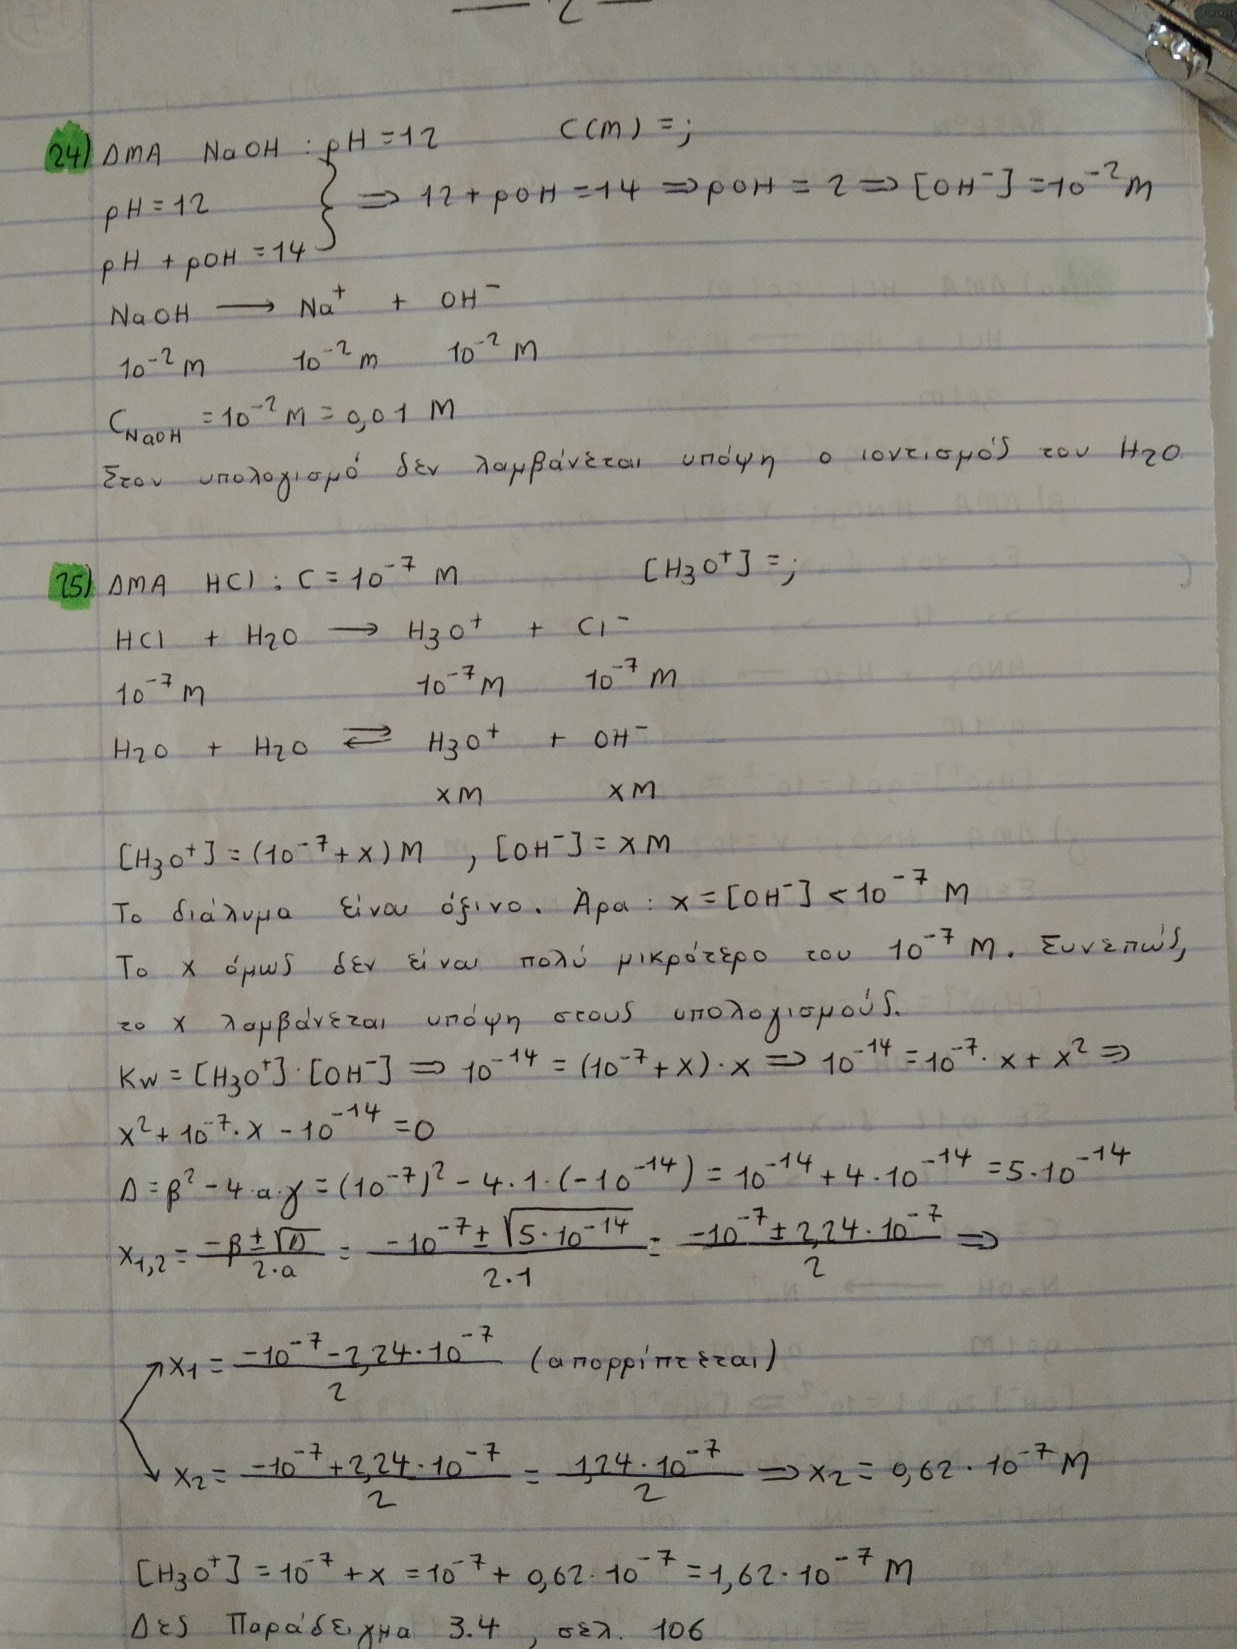 — 2 —
24) ΔΜΑ NaOH : pH = 12 C(M) = ;
pH = 12
pH + pOH = 14 } ⇒ 12 + pOH = 14 ⇒ pOH = 2 ⇒ [OH⁻] = 10⁻² M
NaOH ⟶ Na⁺ + OH⁻
10⁻² M 10⁻² M 10⁻² M
C_NaOH = 10⁻² M = 0,01 M
Στον υπολογισμό δεν λαμβάνεται υπόψη ο ιοντισμός του H₂O
25) ΔΜΑ HCl : C = 10⁻⁷ M [H₃O⁺] = ;
HCl + H₂O ⟶ H₃O⁺ + Cl⁻
10⁻⁷ M 10⁻⁷ M 10⁻⁷ M
H₂O + H₂O ⇌ H₃O⁺ + OH⁻
x M x M
[H₃O⁺] = (10⁻⁷ + x) M , [OH⁻] = x M
Το διάλυμα είναι όξινο. Άρα : x = [OH⁻] < 10⁻⁷ M
Το x όμως δεν είναι πολύ μικρότερο του 10⁻⁷ M. Συνεπώς,
το x λαμβάνεται υπόψη στους υπολογισμούς.
Kw = [H₃O⁺] · [OH⁻] ⇒ 10⁻¹⁴ = (10⁻⁷ + x) · x ⇒ 10⁻¹⁴ = 10⁻⁷ · x + x² ⇒
x² + 10⁻⁷ · x − 10⁻¹⁴ = 0
Δ = β² − 4 · α · γ = (10⁻⁷)² − 4 · 1 · (−10⁻¹⁴) = 10⁻¹⁴ + 4 · 10⁻¹⁴ = 5 · 10⁻¹⁴
x₁,₂ = (−β ± √Δ) / (2·α) = (−10⁻⁷ ± √(5 · 10⁻¹⁴)) / (2·1) = (−10⁻⁷ ± 2,24 · 10⁻⁷) / 2 ⇒
x₁ = (−10⁻⁷ − 2,24 · 10⁻⁷) / 2 (απορρίπτεται)
x₂ = (−10⁻⁷ + 2,24 · 10⁻⁷) / 2 = (1,24 · 10⁻⁷) / 2 ⇒ x₂ = 0,62 · 10⁻⁷ M
[H₃O⁺] = 10⁻⁷ + x = 10⁻⁷ + 0,62 · 10⁻⁷ = 1,62 · 10⁻⁷ M
Δες Παράδειγμα 3.4 , σελ. 106